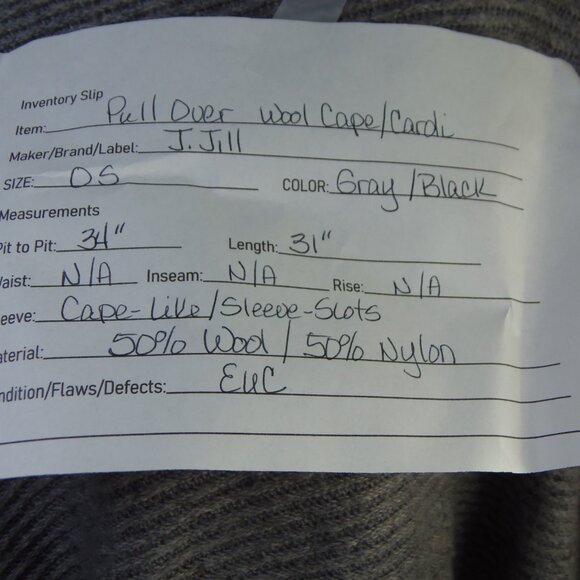 Inventory Slip
Item: Pull Over Wool Cape/Cardi
Maker/Brand/Label: J. Jill
SIZE: OS COLOR: Gray/Black
Measurements
Pit to Pit: 34" Length: 31"
aist: N/A Inseam: N/A Rise: N/A
eeve: Cape-Like/Sleeve-Slots
aterial: 50% Wool / 50% Nylon
ndition/Flaws/Defects: EUC